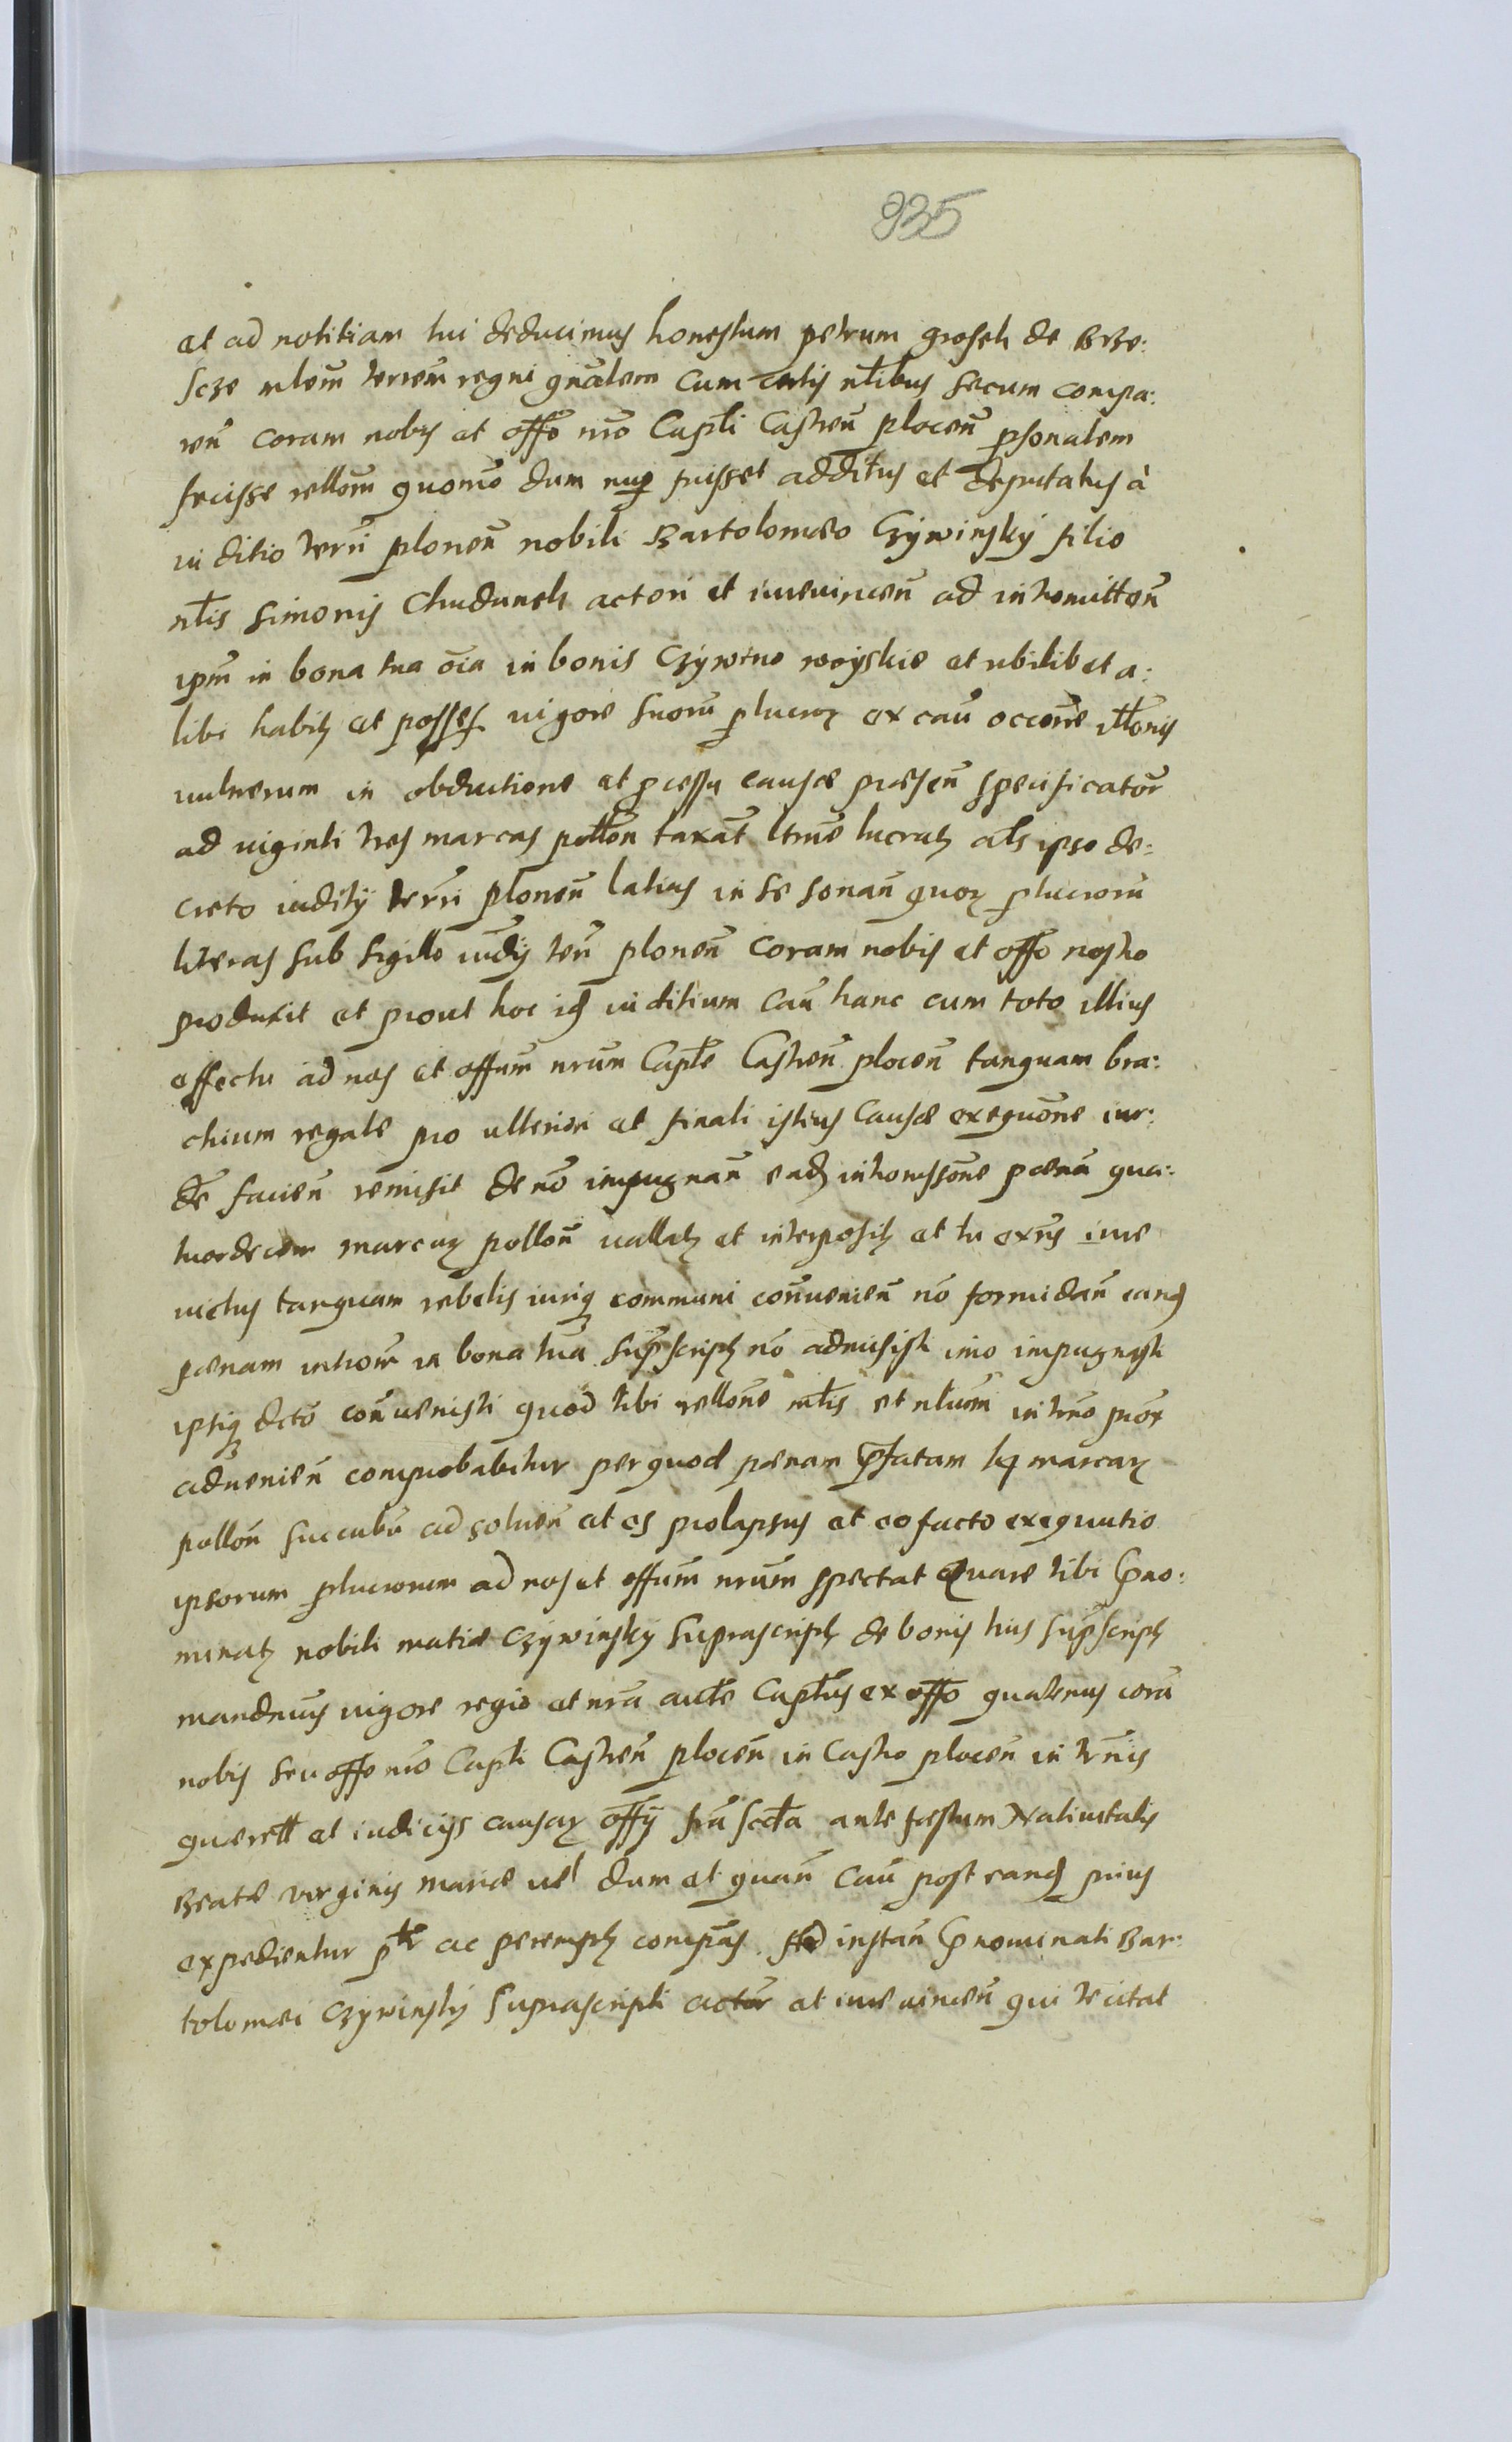 935
et ad notitiam tui deducimus honestum petrum groseh de Brze:
scze mlem terrem regni gnalem Cum certis nlibus secum compa:
ren coram nobis et offo nro Capli Castren plocen psonalem
fecisse rellom quomo dum nup fuisset additus et deputatus à
iuditio terri plonen nobili Bartolomeo Czywinsky filio
nlis Simonis Chudunek actori et iurevincen ad intromitten
ipm in bona tua oia in bonis Czywino woyskie et ubilibet a:
libi habitz et possess vigore suorum plucror ex cau occone illonis
vulnerum in obductione et pcessu causæ præsen specificator
ad viginti tres marcas pollon taxat ltme lucratz als ipso de:
creto iuditij terri plonen latius in se sonan quor plucrorum
literas sub sigillo iudij terri plonen coram nobis et offo nostro
produxit et prout hoc id iuditium Cau hanc cum toto illius
effectu ad nos et offum nrum Caple Castren plocen tanquam bra:
chium regale pro ulteriori et finali istius Causæ exequone iur:
de facien remisit de no impugnan eadz intromissione pœna qua:
tuordecim marcar pollon vallatz et interpositz et tu exns iure
victus tanquam rebelis iuriq communi convenien no formidan eand
pœnam introm in bona tua supscriptz no admisisti imo impugnasti
ipsiq dicto convenisti quod tibi rellone mlis et nlium in trno prox
advenien comprobabitur per quod pœnam pfatam 14 marcar
pollon succubu ad solven et es prolapsus et eo facto exequutio
ipsorum plucrorum ad nos et offum nrum spectat Quare tibi pno:
minatz nobili matiæ Czywinsky suprascriptz de bonis tuis supscriptz
mandmus vigore regio et nra aucte Captus ex offo quatenus cora
nobis seu offo nro Capli Castren plocen in Castro plocen in trnis
querell et iudicijs causar offij fra scda ante festum Nativitatis
Beatæ virginis mariæ vel dum et quan Cau post eand prius
expedientur ptr ac peremptz compas ad instan pnominati Bar:
tolomei Czywinsky suprascripti actor et iure vincen qui te citat